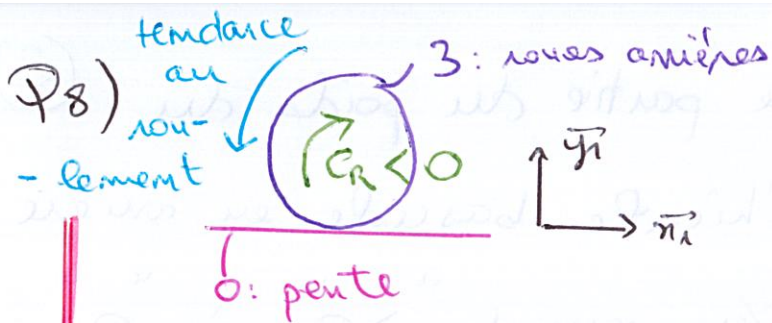 tendance
au
rou-
-lement
Q8)
3: roues arrières
C_R < 0
y₁
x₁
0: pente